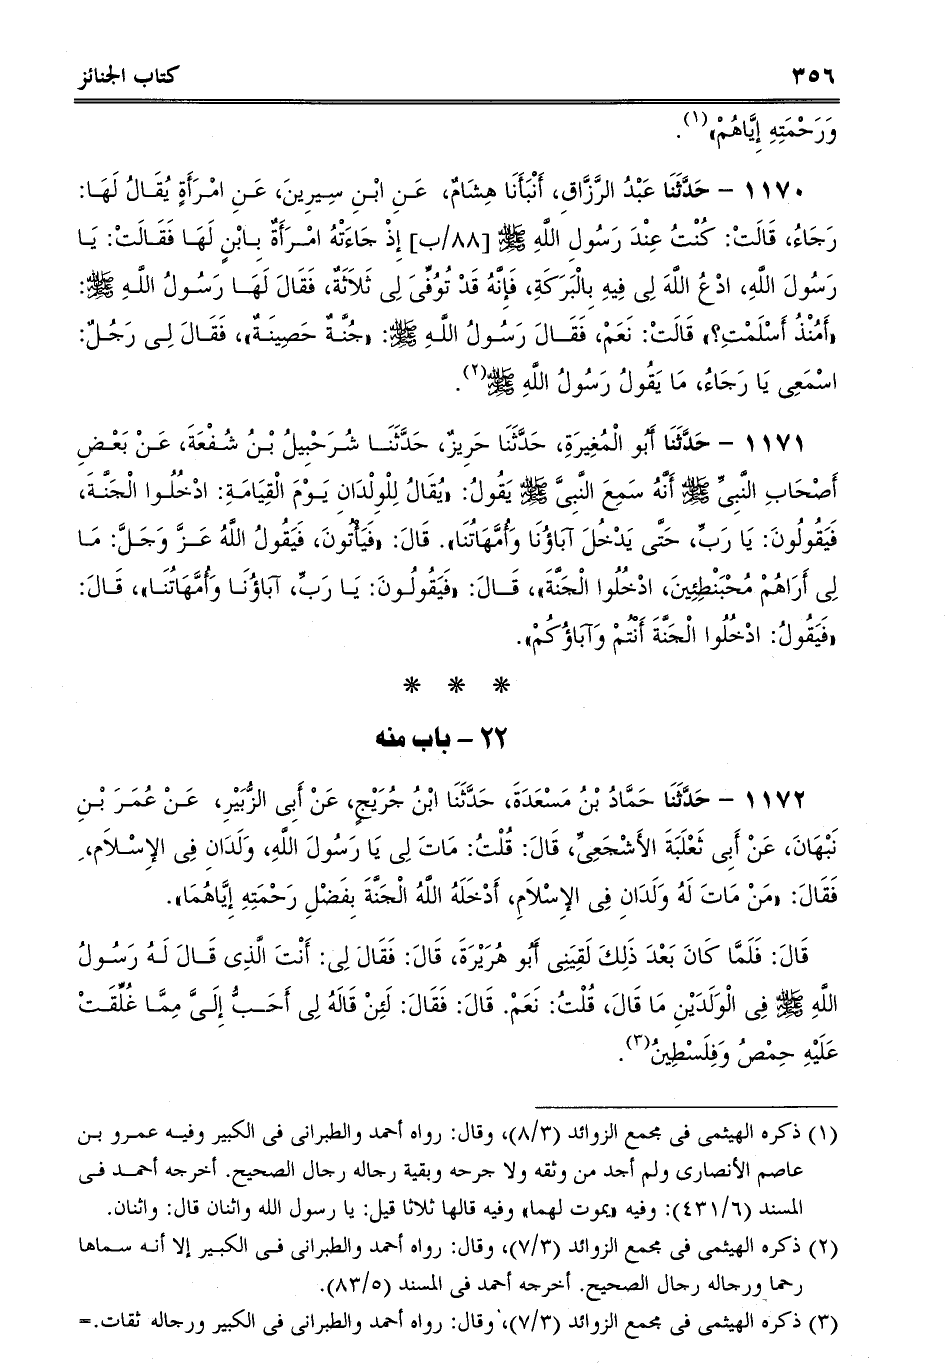 ٣٥٦ كتاب الجنائز
وَرَحْمَتِهِ إِيَّاهُمْ»(١).
١١٧٠ - حَدَّثَنَا عَبْدُ الرَّزَّاقِ، أَنْبَأَنَا هِشَامٌ، عَنِ ابْنِ سِيرِينَ، عَنِ امْرَأَةٍ يُقَالُ لَهَا:
رَجَاءُ، قَالَتْ: كُنْتُ عِنْدَ رَسُولِ اللَّهِ ﷺ [٨٨/ب] إِذْ جَاءَتْهُ امْرَأَةٌ بِابْنٍ لَهَا فَقَالَتْ: يَا
رَسُولَ اللَّهِ، ادْعُ اللَّهَ لِى فِيهِ بِالْبَرَكَةِ، فَإِنَّهُ قَدْ تُوُفِّىَ لِى ثَلاَثَةٌ، فَقَالَ لَهَا رَسُولُ اللَّهِ ﷺ:
«أَمُنْذُ أَسْلَمْتِ؟» قَالَتْ: نَعَمْ، فَقَالَ رَسُولُ اللَّهِ ﷺ: «جُنَّةٌ حَصِينَةٌ»، فَقَالَ لِى رَجُلٌ:
اسْمَعِى يَا رَجَاءُ، مَا يَقُولُ رَسُولُ اللَّهِ ﷺ(٢).
١١٧١ - حَدَّثَنَا أَبُو الْمُغِيرَةِ، حَدَّثَنَا حَرِيزٌ، حَدَّثَنَا شُرَحْبِيلُ بْنُ شُفْعَةَ، عَنْ بَعْضِ
أَصْحَابِ النَّبِىِّ ﷺ أَنَّهُ سَمِعَ النَّبِىَّ ﷺ يَقُولُ: «يُقَالُ لِلْوِلْدَانِ يَوْمَ الْقِيَامَةِ: ادْخُلُوا الْجَنَّةَ،
فَيَقُولُونَ: يَا رَبِّ، حَتَّى يَدْخُلَ آبَاؤُنَا وَأُمَّهَاتُنَا». قَالَ: «فَيَأْتُونَ، فَيَقُولُ اللَّهُ عَزَّ وَجَلَّ: مَا
لِى أَرَاهُمْ مُحْبَنْطِئِينَ، ادْخُلُوا الْجَنَّةَ»، قَالَ: «فَيَقُولُونَ: يَا رَبِّ، آبَاؤُنَا وَأُمَّهَاتُنَا»، قَالَ:
«فَيَقُولُ: ادْخُلُوا الْجَنَّةَ أَنْتُمْ وَآبَاؤُكُمْ».
* * *
٢٢ - باب منه
١١٧٢ - حَدَّثَنَا حَمَّادُ بْنُ مَسْعَدَةَ، حَدَّثَنَا ابْنُ جُرَيْجٍ، عَنْ أَبِى الزُّبَيْرِ، عَنْ عُمَرَ بْنِ
نَبْهَانَ، عَنْ أَبِى ثَعْلَبَةَ الأَشْجَعِىِّ، قَالَ: قُلْتُ: مَاتَ لِى يَا رَسُولَ اللَّهِ، وَلَدَانِ فِى الإِسْلاَمِ،
فَقَالَ: «مَنْ مَاتَ لَهُ وَلَدَانِ فِى الإِسْلاَمِ، أَدْخَلَهُ اللَّهُ الْجَنَّةَ بِفَضْلِ رَحْمَتِهِ إِيَّاهُمَا».
قَالَ: فَلَمَّا كَانَ بَعْدَ ذَلِكَ لَقِيَنِى أَبُو هُرَيْرَةَ، قَالَ: فَقَالَ لِى: أَنْتَ الَّذِى قَالَ لَهُ رَسُولُ
اللَّهِ ﷺ فِى الْوَلَدَيْنِ مَا قَالَ، قُلْتُ: نَعَمْ. قَالَ: فَقَالَ: لَئِنْ قَالَهُ لِى أَحَبُّ إِلَىَّ مِمَّا غُلِّقَتْ
عَلَيْهِ حِمْصُ وَفِلَسْطِينُ(٣).
(١) ذكره الهيثمى فى مجمع الزوائد (٨/٣)، وقال: رواه أحمد والطبرانى فى الكبير وفيه عمرو بن
عاصم الأنصارى ولم أجد من وثقه ولا جرحه وبقية رجاله رجال الصحيح. أخرجه أحمد فى
المسند (٤٣١/٦): وفيه «يموت لهما» وفيه قالها ثلاثا قيل: يا رسول الله واثنان قال: واثنان.
(٢) ذكره الهيثمى فى مجمع الزوائد (٧/٣)، وقال: رواه أحمد والطبرانى فى الكبير إلا أنه سماها
رحما ورجاله رجال الصحيح. أخرجه أحمد فى المسند (٨٣/٥).
(٣) ذكره الهيثمى فى مجمع الزوائد (٧/٣)، وقال: رواه أحمد والطبرانى فى الكبير ورجاله ثقات.=